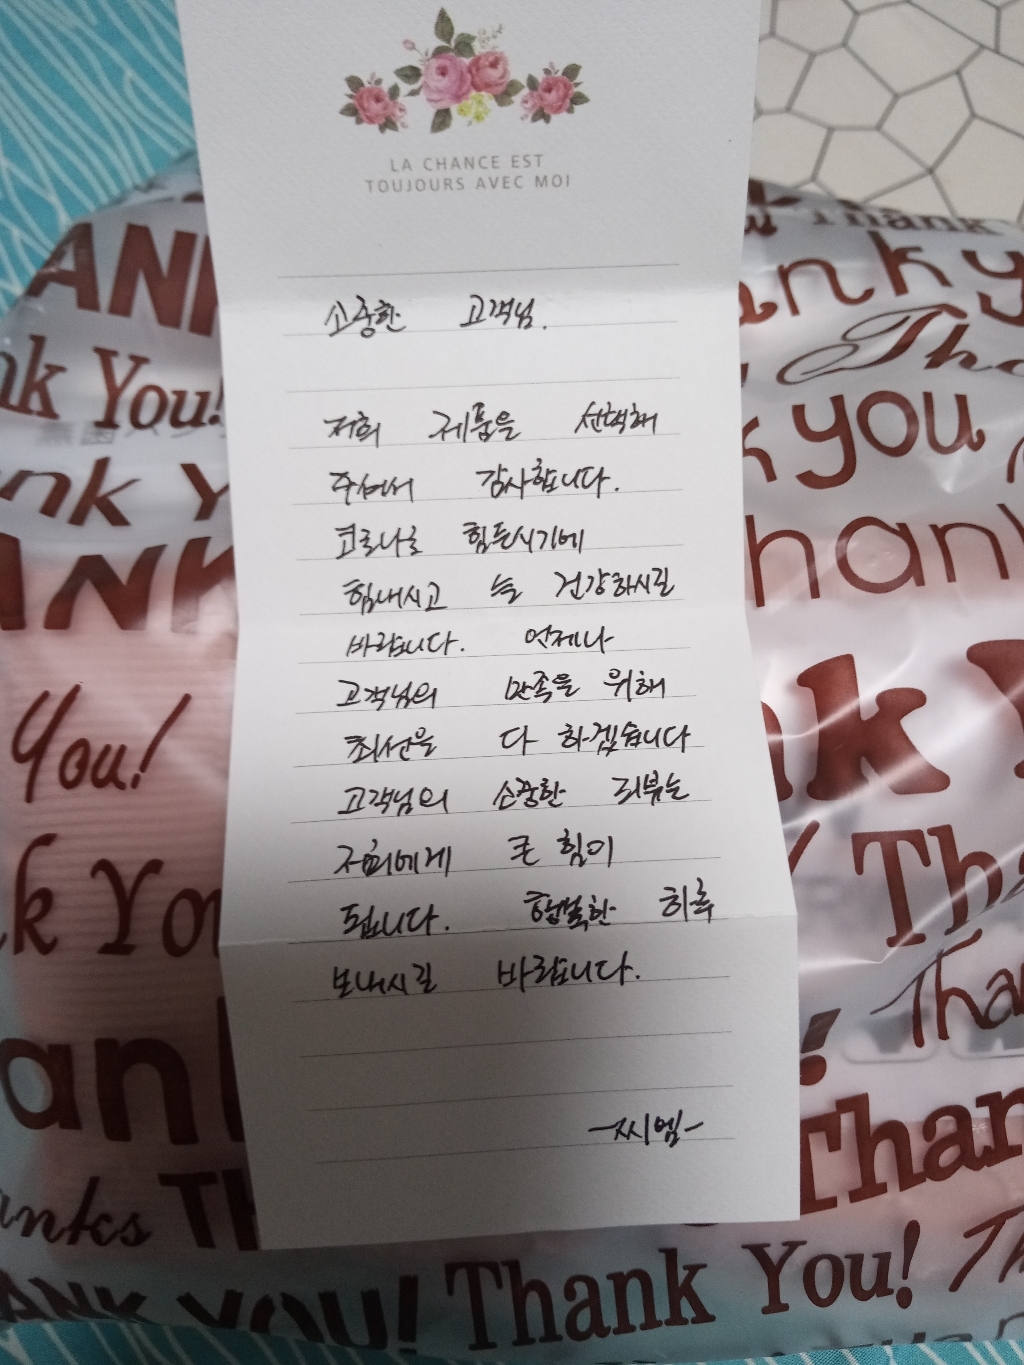 LA CHANCE EST
TOUJOURS AVEC MOI
소중한 고객님.
저희 제품을 선택해
주셔서 감사합니다.
코로나로 힘든시기에
힘내시고 늘 건강하시길
바랍니다. 언제나
고객님의 만족을 위해
최선을 다 하겠습니다
고객님의 소중한 리뷰는
저희에게 큰 힘이
됩니다. 행복한 하루
보내시길 바랍니다.
-씨엠-
ANK
Thank
nk You!
ank y
Tha
k you
nk Y
ANK
hank
You!
ank
k You
Thank
Tha
ank
Than
anks TH
ANK YOU! Thank You! Th